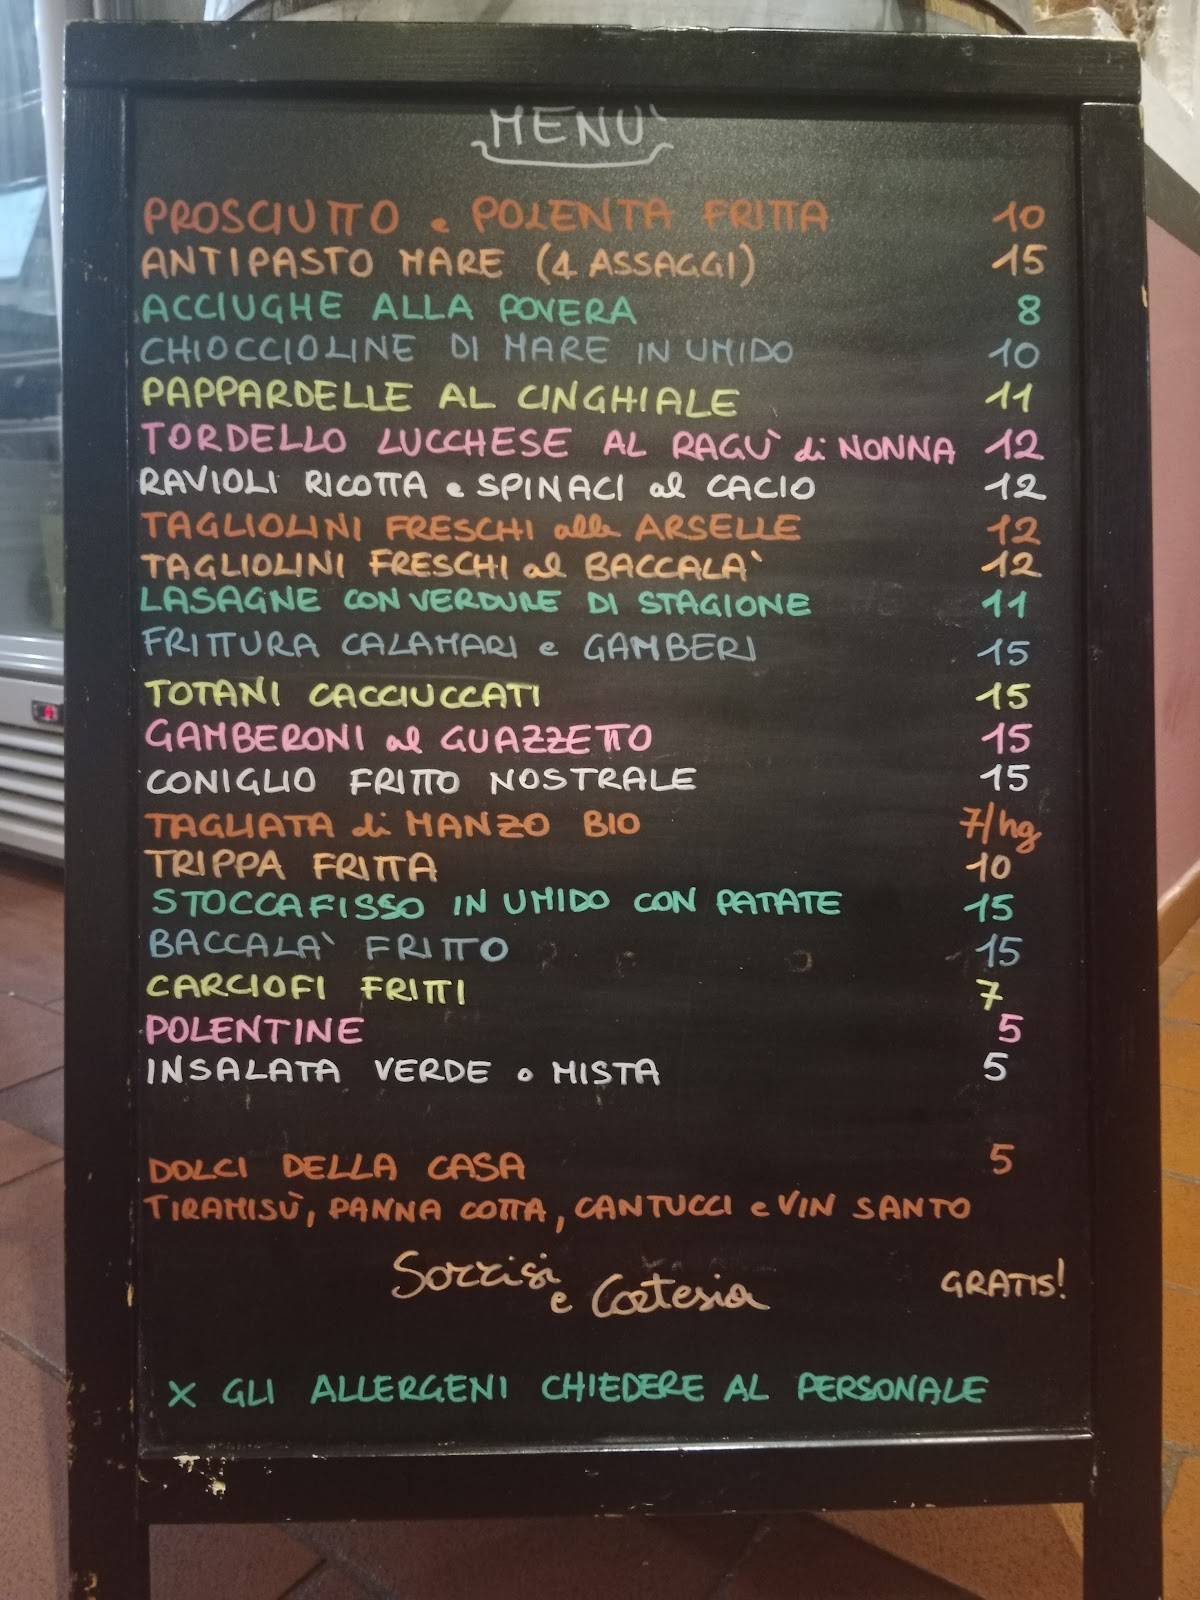 MENU'
PROSCIUTTO e POLENTA FRITTA 10
ANTIPASTO MARE (4 ASSAGGI) 15
ACCIUGHE ALLA POVERA 8
CHIOCCIOLINE DI MARE IN UMIDO 10
PAPPARDELLE AL CINGHIALE 11
TORDELLO LUCCHESE AL RAGÙ di NONNA 12
RAVIOLI RICOTTA e SPINACI al CACIO 12
TAGLIOLINI FRESCHI alle ARSELLE 12
TAGLIOLINI FRESCHI al BACCALA' 12
LASAGNE CON VERDURE DI STAGIONE 11
FRITTURA CALAMARI e GAMBERI 15
TOTANI CACCIUCCATI 15
GAMBERONI al GUAZZETTO 15
CONIGLIO FRITTO NOSTRALE 15
TAGLIATA di MANZO BIO 7/hg
TRIPPA FRITTA 10
STOCCAFISSO IN UMIDO CON PATATE 15
BACCALA' FRITTO 15
CARCIOFI FRITTI 7
POLENTINE 5
INSALATA VERDE o MISTA 5
DOLCI DELLA CASA 5
TIRAMISÙ, PANNA COTTA, CANTUCCI e VIN SANTO
Sorrisi e Cortesia GRATIS!
X GLI ALLERGENI CHIEDERE AL PERSONALE